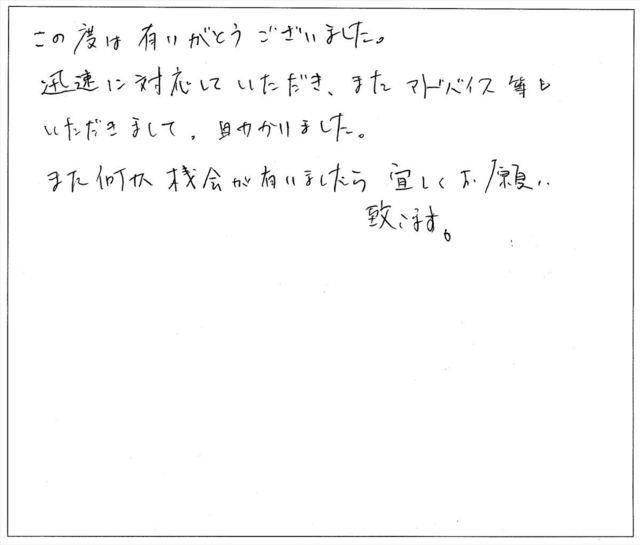 この度は有りがとうございました。
迅速に対応していただき、またアドバイス等も
いただきまして、助かりました。
また何か機会が有りましたら宜しくお願い
致します。